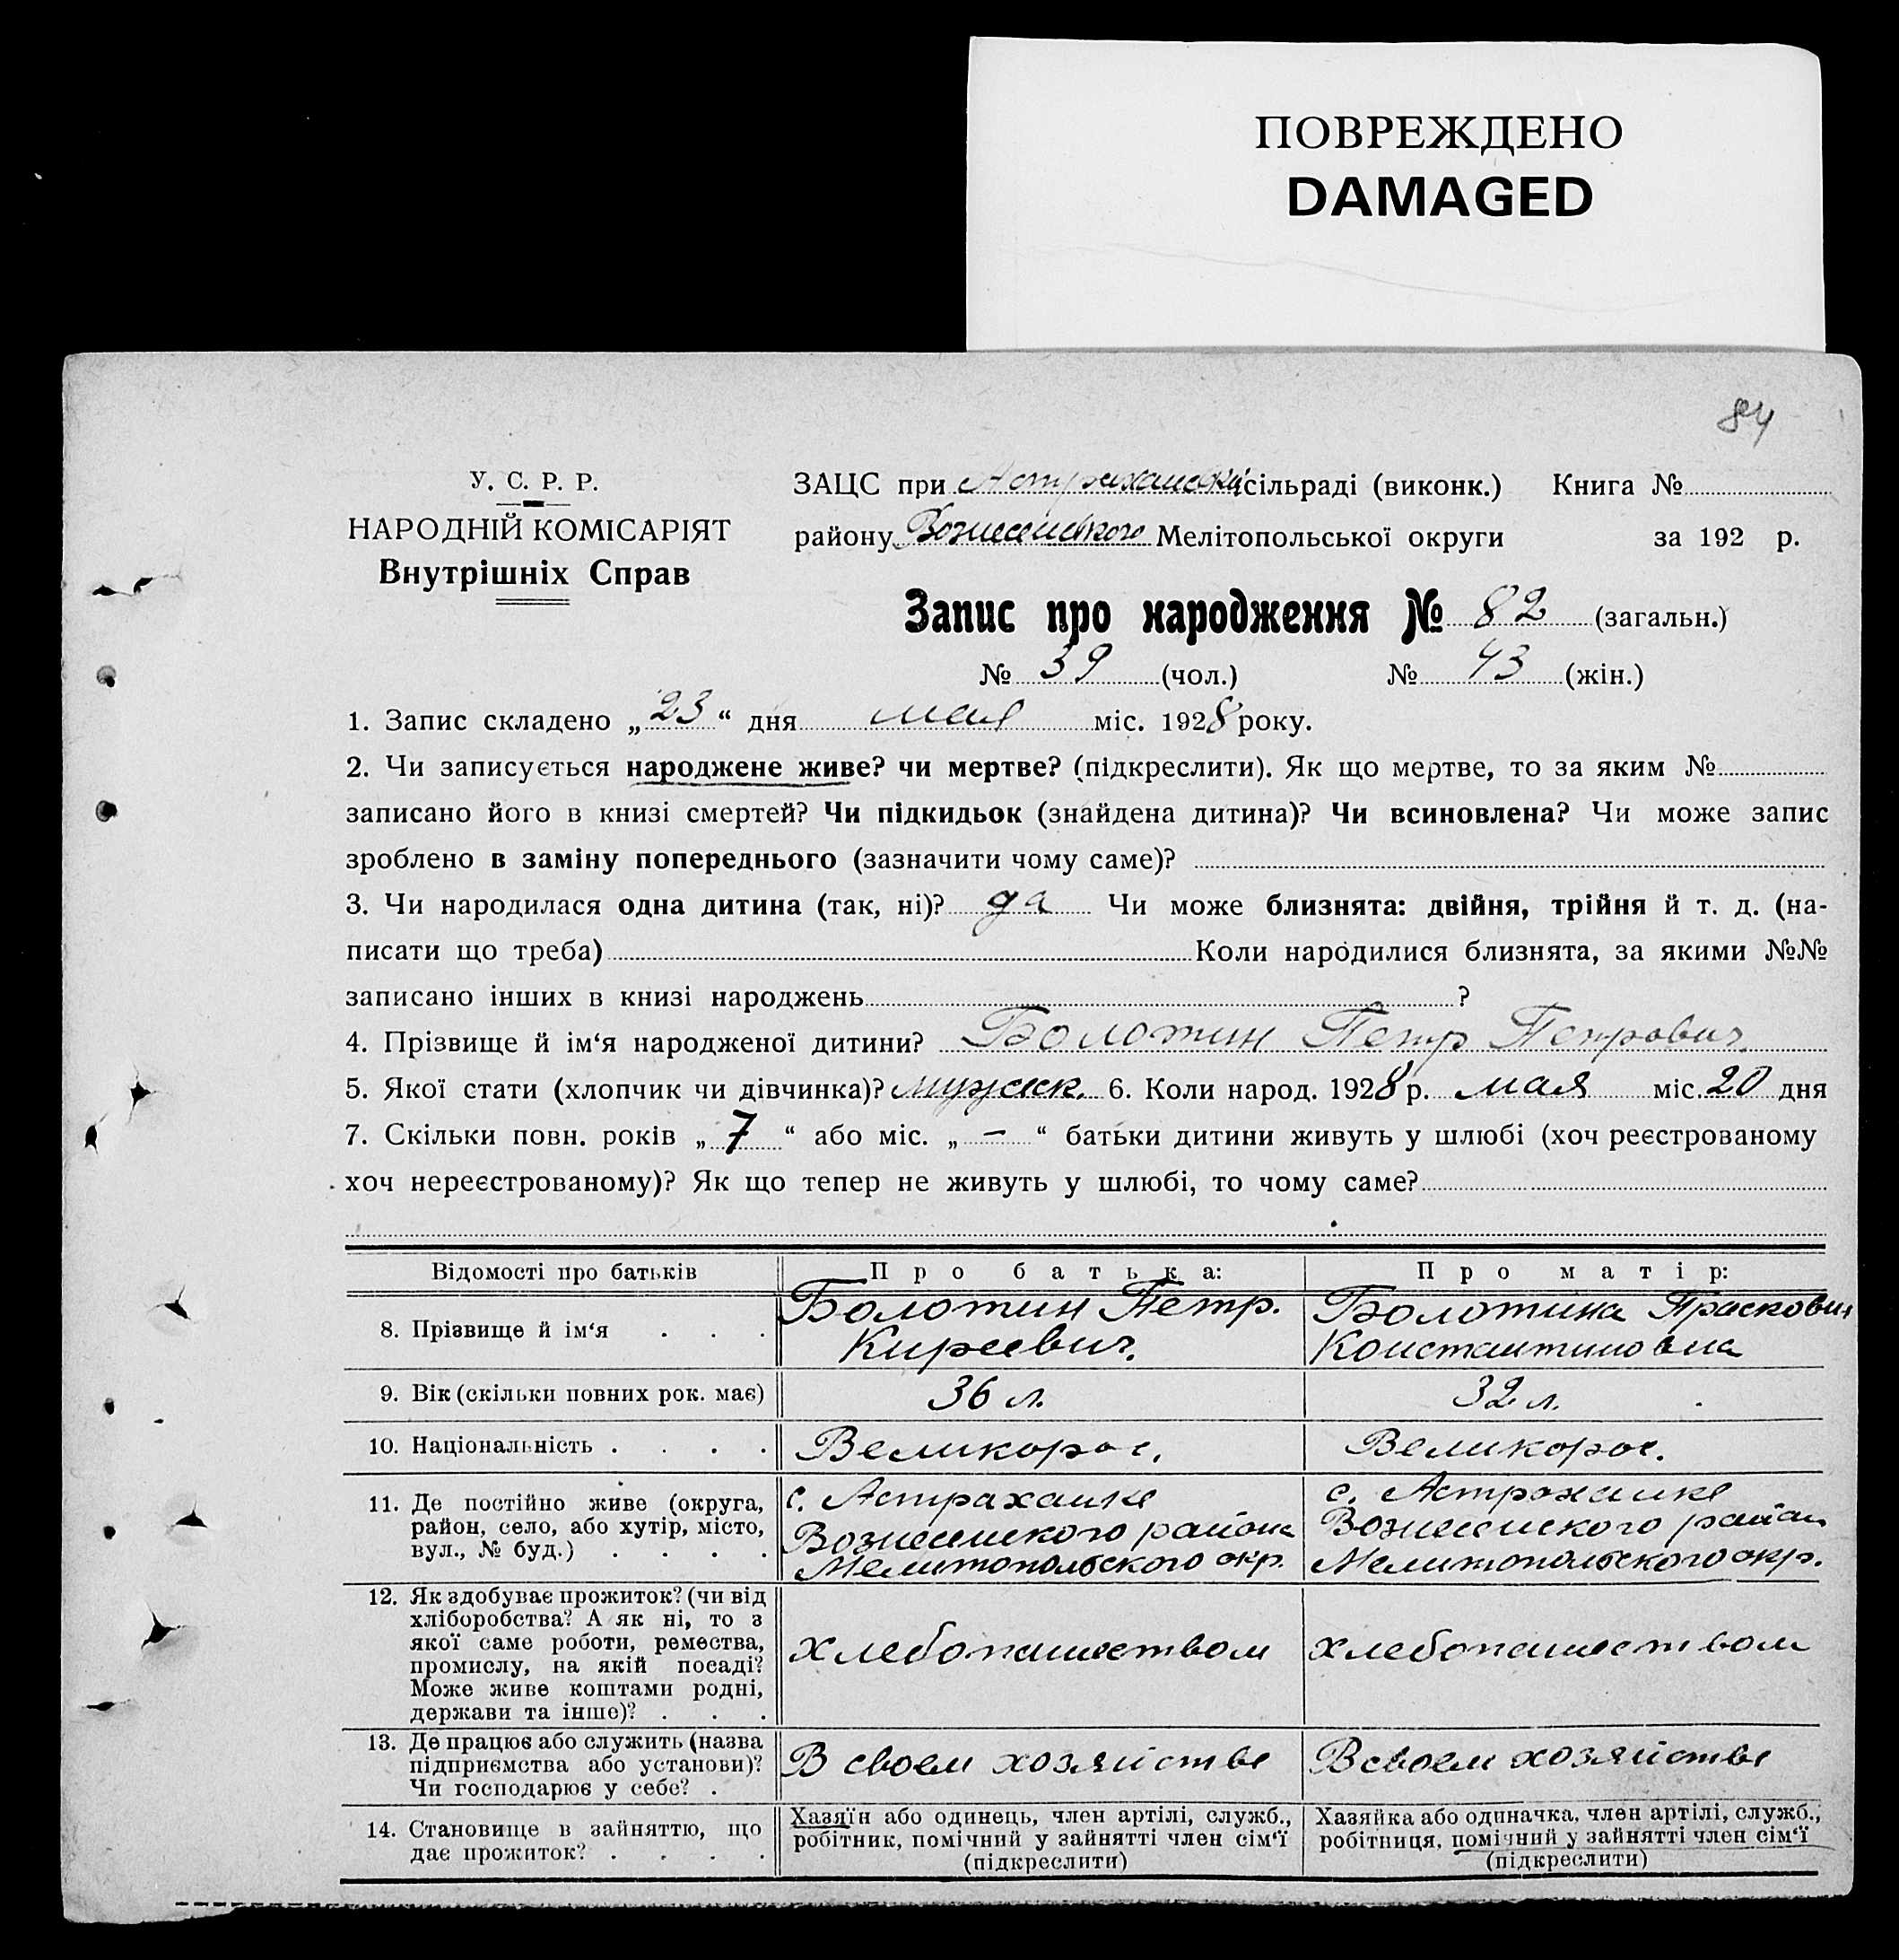 ПОВРЕЖДЕНО
DAMAGED
84
У. С. Р. Р.
НАРОДНІЙ КОМІСАРІЯТ
Внутрішніх Справ
ЗАЦС при Астраханській сільраді (виконк.) Книга №
району Вознесенского Мелітопольської округи за 192 р.
Запис про народження № 82 (загальн.)
№ 39 (чол.) № 43 (жін.)
1. Запис складено „23“ дня мая міс. 1928 року.
2. Чи записується народжене живе? чи мертве? (підкреслити). Як що мертве, то за яким №
записано його в книзі смертей? Чи підкидьок (знайдена дитина)? Чи всиновлена? Чи може запис
зроблено в заміну попереднього (зазначити чому саме)?
3. Чи народилася одна дитина (так, ні)? да Чи може близнята: двійня, трійня й т. д. (на-
писати що треба) Коли народилися близнята, за якими №№
записано інших в книзі народжень ?
4. Прізвище й ім‘я народженої дитини? Болотин Петр Петрович
5. Якої стати (хлопчик чи дівчинка)? мужск. 6. Коли народ. 1928 р. мая міс. 20 дня
7. Скільки повн. років „7“ або міс. „–“ батьки дитини живуть у шлюбі (хоч реєстрованому
хоч нереєстрованому)? Як що тепер не живуть у шлюбі, то чому саме?
Відомості про батьків Про батька: Про матір:
8. Прізвище й ім‘я . . . Болотин Петр. Киреевич. Болотина Прасковия Константиновна
9. Вік (скільки повних рок. має) 36 л. 32 л.
10. Національність . . . . Великорос. Великорос.
11. Де постійно живе (округа, с. Астраханке с. Астраханке
район, село, або хутір, місто, Вознесенского района Вознесенского район
вул., № буд.) . . . . Мелитопольского окр. Мелитопольского окр.
12. Як здобуває прожиток? (чи від
хліборобства? А як ні, то з
якої саме роботи, ремества, хлебопашеством хлебопашеством
промислу, на якій посаді?
Може живе коштами родні,
держави та інше)? . . .
13. Де працює або служить (назва
підприємства або установи)? В своем хозяйстве В своем хозяйстве
Чи господарює у себе? .
14. Становище в зайняттю, що Хазяїн або одинець, член артілі, служб., Хазяйка або одиначка, член артілі, служб.,
дає прожиток? . . . . робітник, помічний у зайнятті член сім‘ї робітниця, помічний у зайнятті член сім‘ї
(підкреслити) (підкреслити)